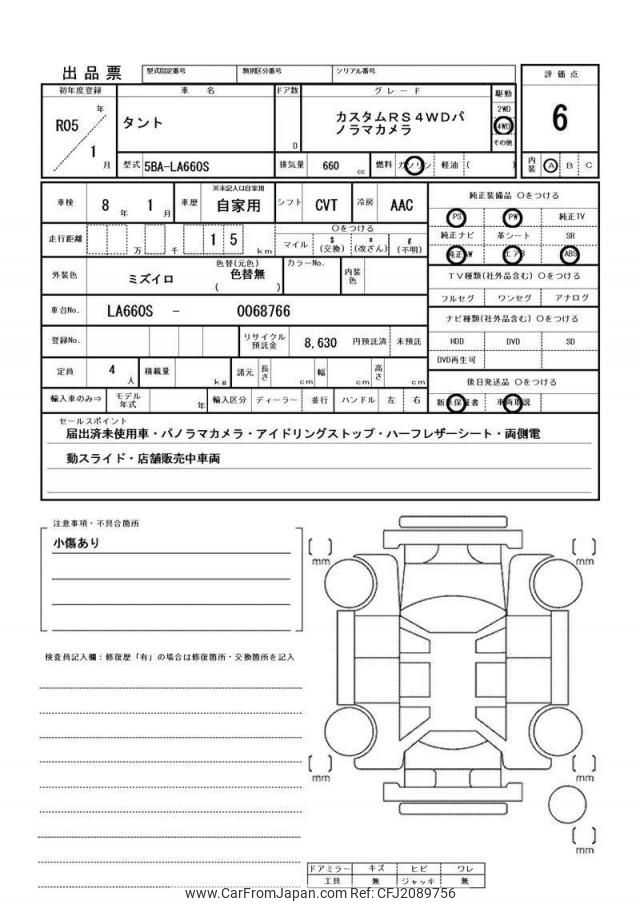 出品票
型式指定番号 類別区分番号 シリアル番号
評価点
6
初年度登録 車名 ドア数 グレード 駆動
R05 年 1 月
タント
D
カスタムRS4WDパ
ノラマカメラ
2WD
4WD
その他
型式 5BA-LA660S 排気量 660 cc 燃料 ガソリン 軽油 ( )
内装 A B C
車検 8 年 1 月 車歴 ※未記入は自家用 自家用 シフト CVT 冷房 AAC
純正装備品 ○をつける
PS PW 純正TV
純正ナビ 革シート SR
純正AW エアB ABS
走行距離 万 千 1 5 km
○をつける
マイル $(交換) *(改ざん) #(不明)
外装色 ミズイロ 色替(元色) 色替無 ( ) カラーNo. 内装色
TV種類(社外品含む) ○をつける
フルセグ ワンセグ アナログ
車台No. LA660S - 0068766
ナビ種類(社外品含む) ○をつける
HDD DVD SD
DVD再生可
登録No. リサイクル預託金 8,630 円預託済 未預託
定員 4 人 積載量 kg 諸元 長さ cm 幅 cm 高さ cm
後日発送品 ○をつける
新車保証書 車両取説
輸入車のみ⇒ モデル年式 年 輸入区分 ディーラー 並行 ハンドル 左 右
セールスポイント
届出済未使用車・パノラマカメラ・アイドリングストップ・ハーフレザーシート・両側電
動スライド・店舗販売中車両
注意事項・不具合箇所
小傷あり
検査員記入欄：修復歴「有」の場合は修復箇所・交換箇所を記入
[ ] mm
[ ] mm
[ ] mm
[ ] mm
[ ] mm
ドアミラー キズ ヒビ ワレ
工具 無 ジャッキ 無
www.CarFromJapan.com Ref: CFJ2089756